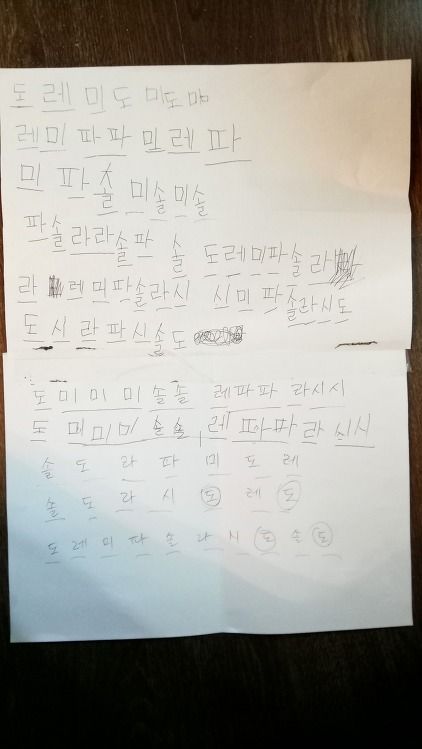 도 레 미 도 미도 미
레미 파파 미 레 파
미 파 솔 미솔 미솔
파솔 라라솔파 솔 도레미파솔 라
라 레 미파솔라시 시미 파 솔라시도
도 시 라 파시솔도
도 미 미 미 솔 솔 레파파 라시시
도 미미미 솔솔 레 파파 라 시시
솔 도 라 파 미 도 레
솔 도 라 시 도 레 도
도 레 미 파 솔 라 시 도 솔 도